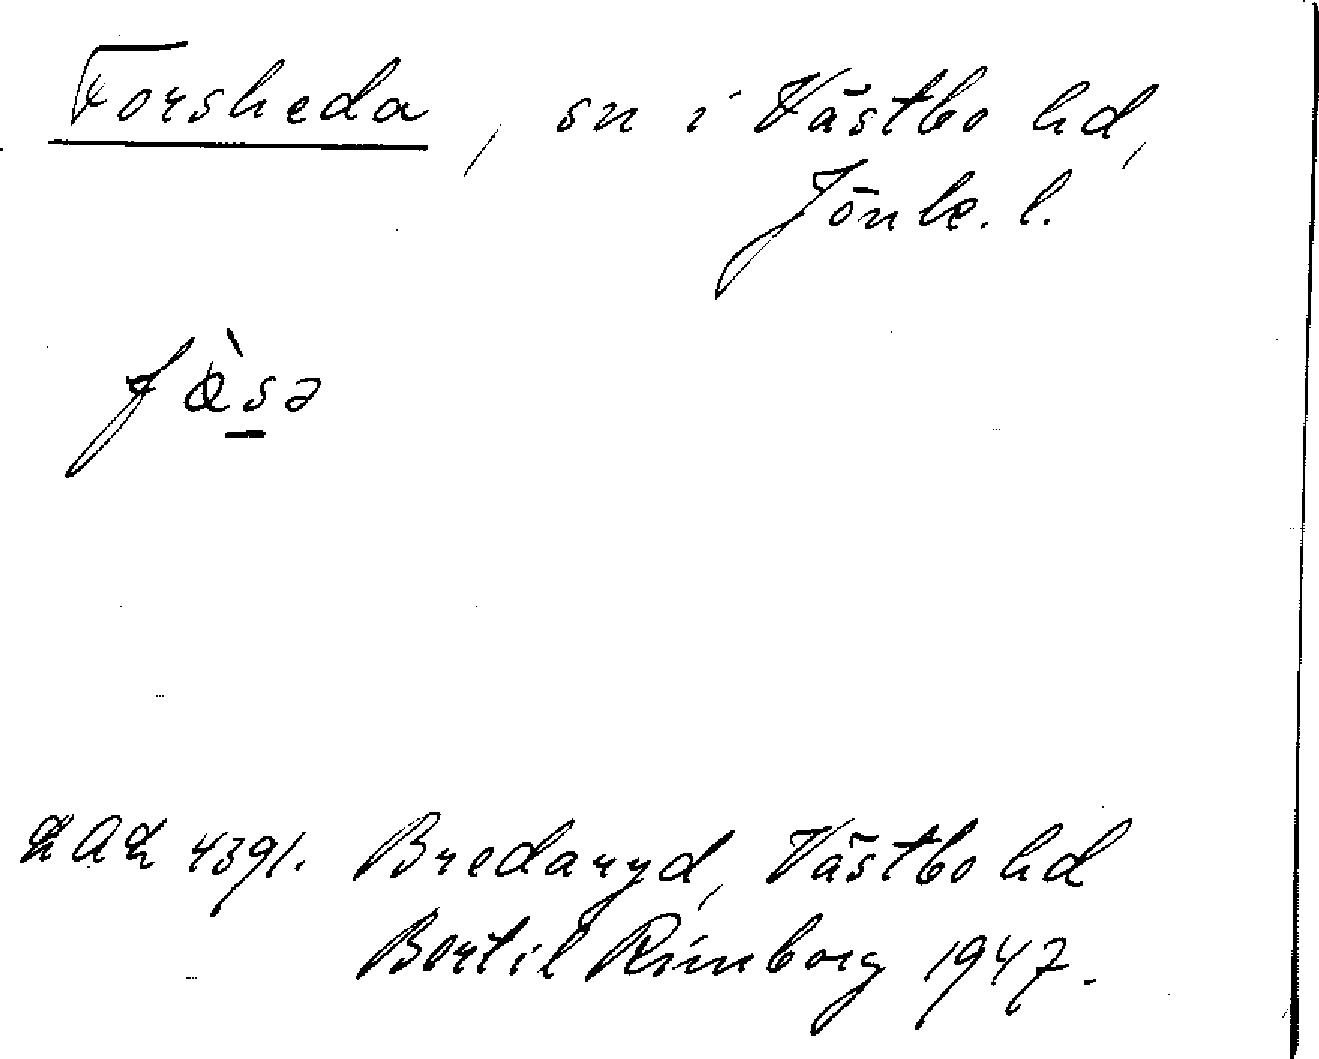 Forsheda, sn i Västbo hd,
Jönk. l.
fàsə
ULMA 4391. Bredaryd, Västbo hd
Bertil Rimborg 1947.